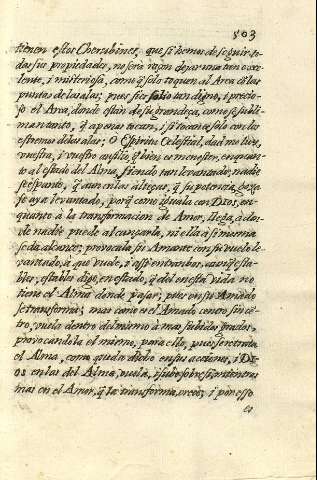 503
tienen estos Cherubines, que si hemos de seguir to-
das sus propiedades, no será razon dejar una tan exce-
lente, i misteriosa, como q̃ solo toquen al Arca cõ las
puntas de las alas; pues siẽdo solio tan digno, i precio-
so el Arca, donde están de su grandeça, como se subli-
man tanto, q̃ apenas tocan, i si tocan es solo con los
estremos de las alas; O Espiritu Celestial, dad me luz
vuestra, i vuestro ausilio, q̃ bien es menester, en quan-
to al estado del Alma, siendo tan levantado; nadie
se espante, q̃ aun en las alteças, q̃ su potencia
se aya levantado, porq̃ como iguala con Dios, en
quanto à la transformacion de Amor, llega, à don-
de nadie puede alcançarla, ni ella à si misma
se da alcance; provocala su Amante con su vuelo le-
vantado, à que vuele, i
bles, estables digo, en estado, q̃ del en esta vida no
tiene el Alma donde pasar, pues en su Amado
se transforma; mas como es el Amado centro sin cẽ-
tro, vuela dentro del mismo à mas subidos grados,
provocandola el mismo, para ello, pues se retrata
el Alma, como queda dicho en sus acciones, i Di-
os en las del Alma, vuela, i sube sobre si
mas en el Amor, q̃ la transforma, i por esso
es